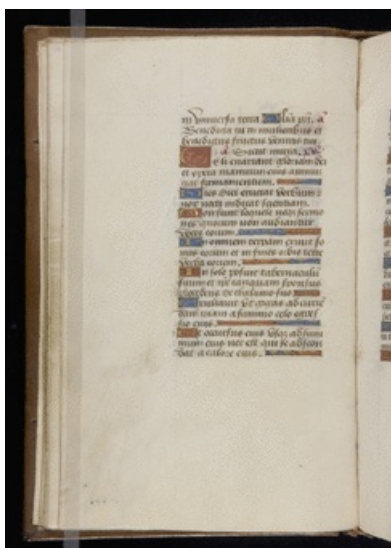 in universa terra. Gloria pri. a
Benedicta tu in mulieribus et
benedictus fructus ventris tui.
a Sicut mirra. ps
Celi enarrant gloriam dei
et opera manuum eius annun
ciat firmamentum.
Dies diei eructat verbum:
nox nocti indicat scientiam.
Non sunt loquele neqz sermo
nes quorum non audiantur
voces eorum.
In omnem terram exivit so
nus eorum et in fines orbis terre
verba eorum.
In sole posuit tabernaculū
suum et ipse tanquam sponsus
procedens de thalamo suo
Exultavit ut gigas ad curren
dam viam a summo celo egres
sio eius.
Et occursus eius usqz ad sum
mum eius nec est qui se abscon
dat a calore eius.